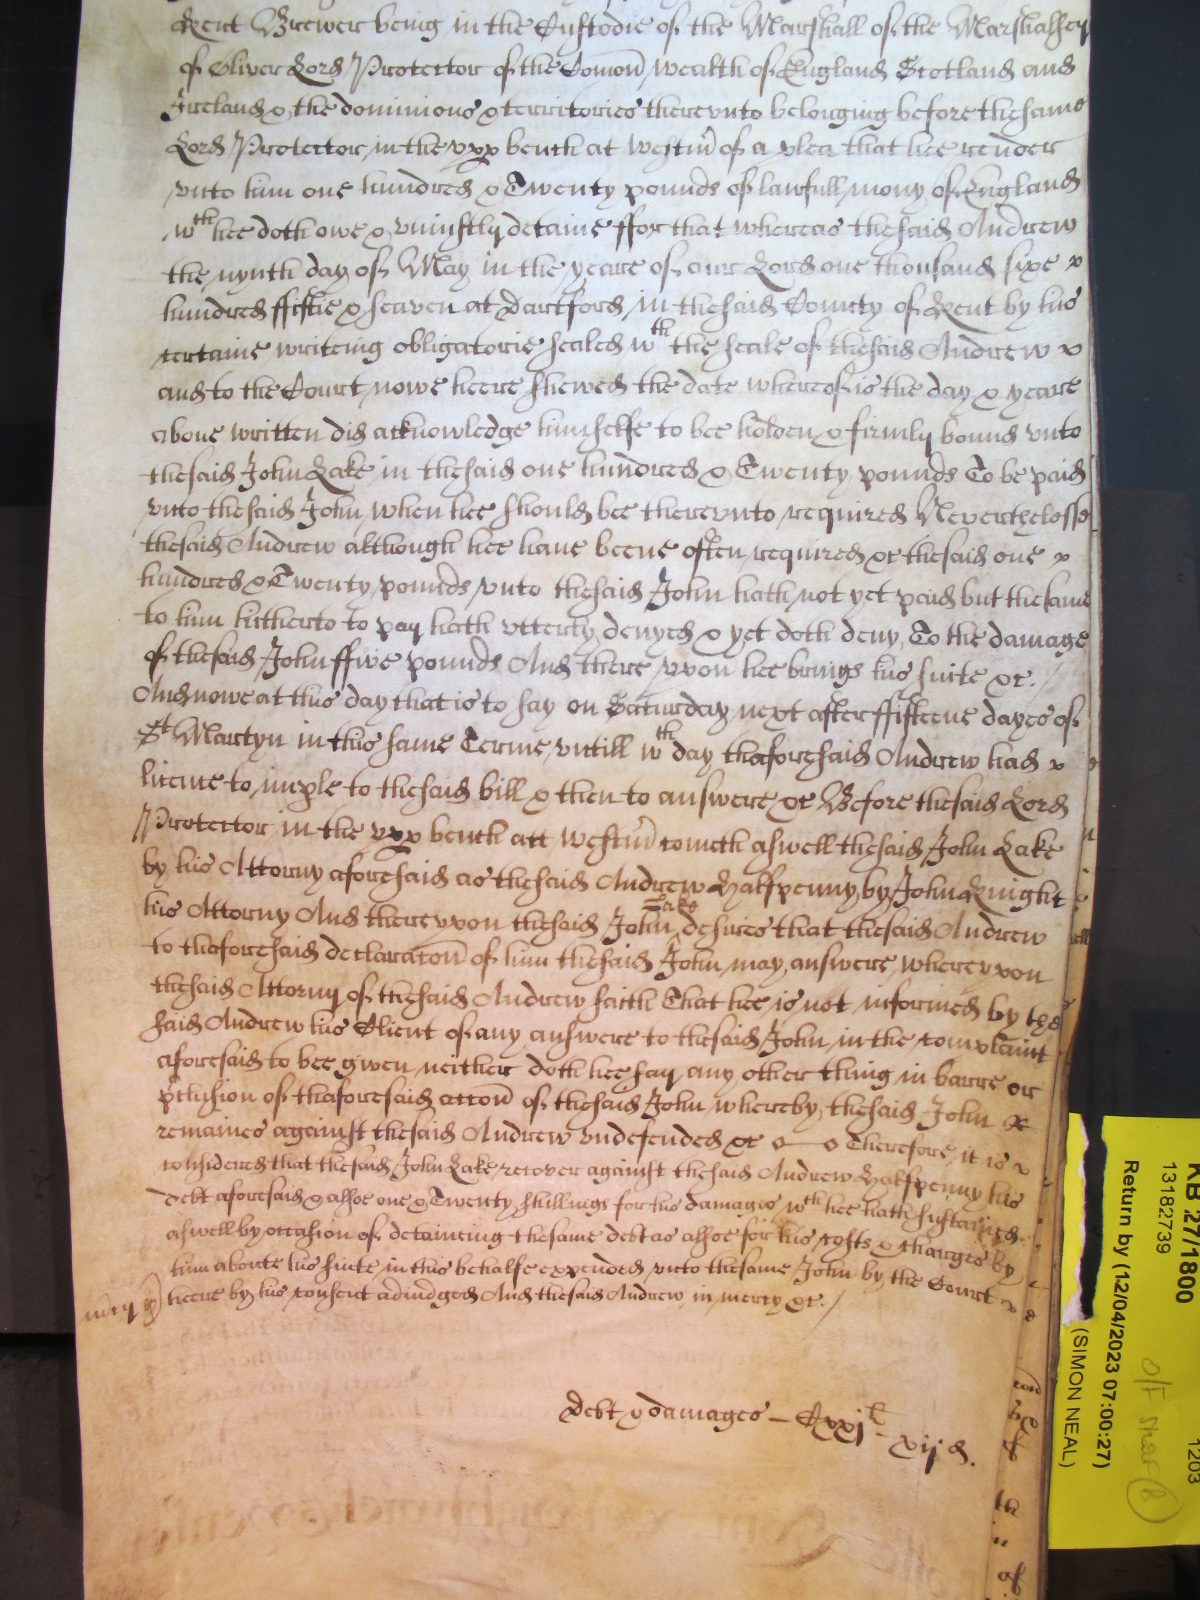 Kent Brewer being in the Custodie of the Marshall of the Marshalsey
of Oliver Lord Protector of the Comon wealth of England Scotland and
Ireland & the dominions & territories therevnto belonging before the same
Lord Protector in the vpp bench at Westmr of a plea that hee render
vnto him one hundred & Twenty pounds of lawfull mony of England
wth hee doth owe & vniustly detaine ffor that whereas the said Andrew
the nynth day of May in the yeare of our Lord one thousand sixe
hundred fiftie & seaven at Dartford in the said County of Kent by his
certaine writeing obligatorie sealed wth the seale of the said Andrew
and to the Court nowe heere shewed the date whereof is the day & yeare
aboue written did acknowledge himselfe to bee holden & firmly bound vnto
the said John Lake in the said one hundred & Twenty pounds To be paid
vnto the said John when hee should bee therevnto required Neverthelesse
the said Andrew although hee haue beene often required &c the said one
hundred & Twenty pounds vnto the said John hath not yet paid but the same
to him hitherto to pay hath vtterly denyed & yet doth deny To the damage
of the said John ffive pounds And there vpon hee brings his suite &c.
And nowe at this day that is to say on Saturday next after fifteene dayes of
St Martyn in this same Terme vntill wth day thaforesaid Andrew had
licence to imple to the said bill & then to answere &c Before the said Lord
Protector in the vpp bench att Westmr cometh aswell the said John Lake
by his Attorny aforesaid as the said Andrew Halfpenny by John Knight
his Attorny And therevpon the said John Lake desires that the said Andrew
to thaforesaid declaraton of him the said John may answere wherevpon
the said Attorny of the said Andrew saith That hee is not informed by the
said Andrew his Client of any answere to the said John in the complaint
aforesaid to bee given neither doth hee say any other thing in barre or
pclusion of thaforesaid accon of the said John whereby the said John
remaines against the said Andrew vndefended &c Therefore it is
considered that the said John Lake recover against the said Andrew Halfpenny his
debt aforesaid & alsoe one & Twenty shillings for his damages wth hee hath sustained
aswell by occasion of detaineing the same debt as alsoe for his costs & charges by
him aboute his suite in this behalfe expended vnto the same John by the Court
mcy heere by his consent adiudged And the said Andrew in mercy &c.
Debt & damages – Cxxjl – xij d.
KB 27/1800
13182739
Return by (12/04/2023 07:00:27)
(SIMON NEAL)
1203